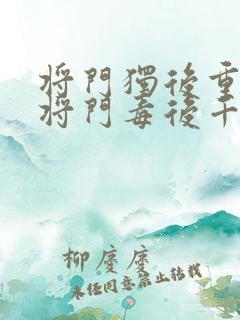 將門獨後重
將門毒後千
柳慶慶
未任同意禁止转载